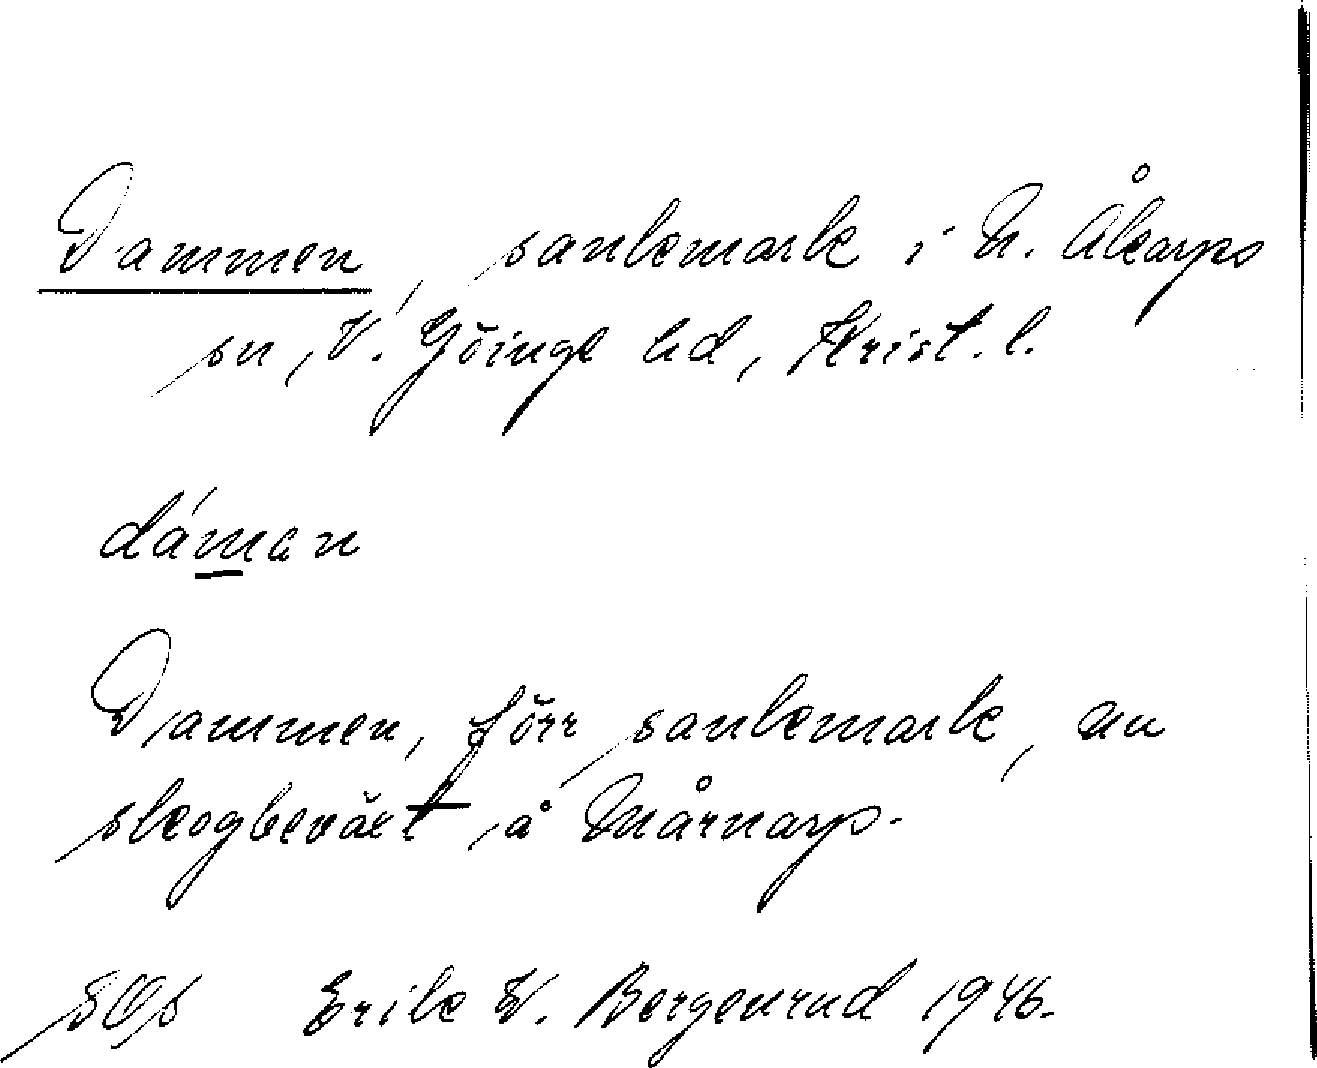 Dammen, sankmark i N. Åkarps
sn, V. Göinge hd, Krist. l.
dáman
Dammen, förr sankmark, nu
skogbeväxt, å Mårnarp.
SOs Erik W. Bergenrud 1946.